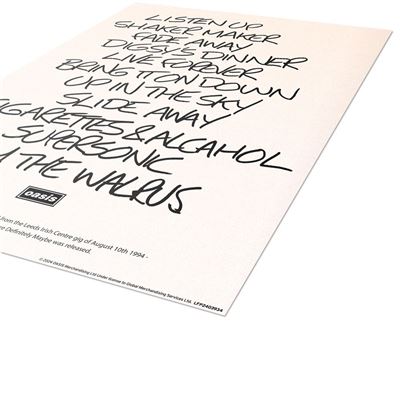 LISTEN UP
SHAKER MAKER
FADE AWAY
DIGSY'S DINNER
LIVE FOREVER
BRING IT ON DOWN
UP IN THE SKY
SLIDE AWAY
IGARETTES & ALCAHOL
SUPERSONIC
THE WALRUS
oasis
from the Leeds Irish Centre gig of August 10th 1994 -
re Definitely Maybe was released.
© 2024 OASIS Merchandising Ltd Under license to Global Merchandising Services Ltd. LFP2403934